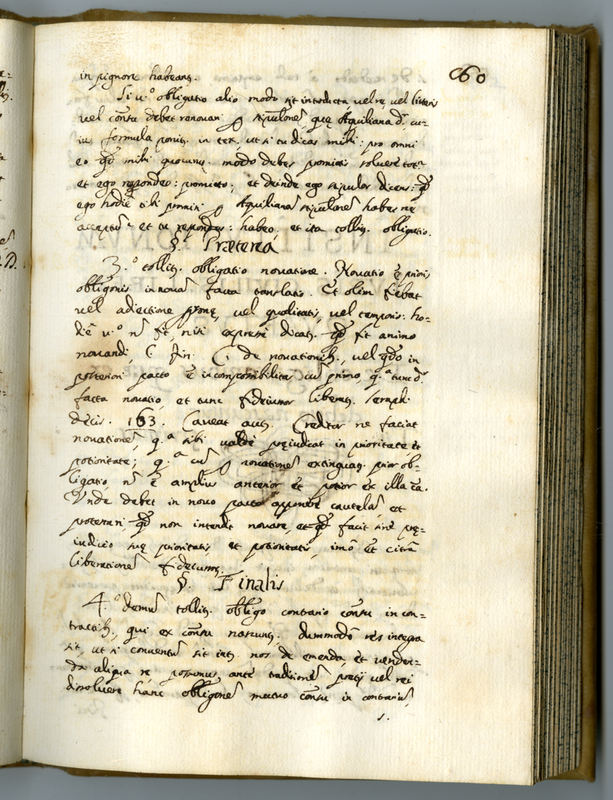 60
in pignore habeant.
Si v.º obligatio alio modo sit introducta vel re, vel litteris
vel consu debet renovari p stipulonē que Aquiliana d.r cu-
ius formula ponit. in tex. ut si tu dicas mihi: pro omni
eo qd mihi quocunq. modo debes promittis solvere
et ego respondeo: promitto; et deinde ego stipulor dicens: qd
ego hodiè tibi promisi p Aquilianā stipulonē habes ne
acceptū et tu respondes: habeo et ita tollit. obligatio.
§. Præterea
3.º tollit. obligatio novatione. Novatio ē primi
obligonis in novā facta translatio. Et olim fiebat
vel adiectione psonę, vel qualitatis, vel temporis: ho-
diē v.º n. fit, nisi expresse dicat. qd fit animo
novandi, C. fin. C. de novationib., vel qdo in
posteriori pacto ē incompossibilitas cū primo, q.a tunc d.r
facta novatio, et tunc fideiussor liberat. Seraph.
decis. 163. Caveat aut. Creditor ne faciat
novationē, q.a sibi valdè preiudicat in prioritate et
potioritate; q.a cū p novationē extinguat. prior ob-
ligatio n. ē amplius anterior et potior ex illa cā.
Unde debet in novo pacto apponere cautelā, et
protestari qd non intendit novare, et qd facit sine prę-
iudicio suę prioritatis et potioritatis, imò et citrà
liberationē fideiussorū
§. Finalis
4.º demū tollit. obligo contrario consu in con-
tractib., qui ex consu nascunt. dummodò res integra
sit, ut si conventū sit inter nos de emenda, et venden-
da aliqua re possumus antè traditionē pretij vel rei
dissolvere hanc obligonē mutuo consu in contrariū